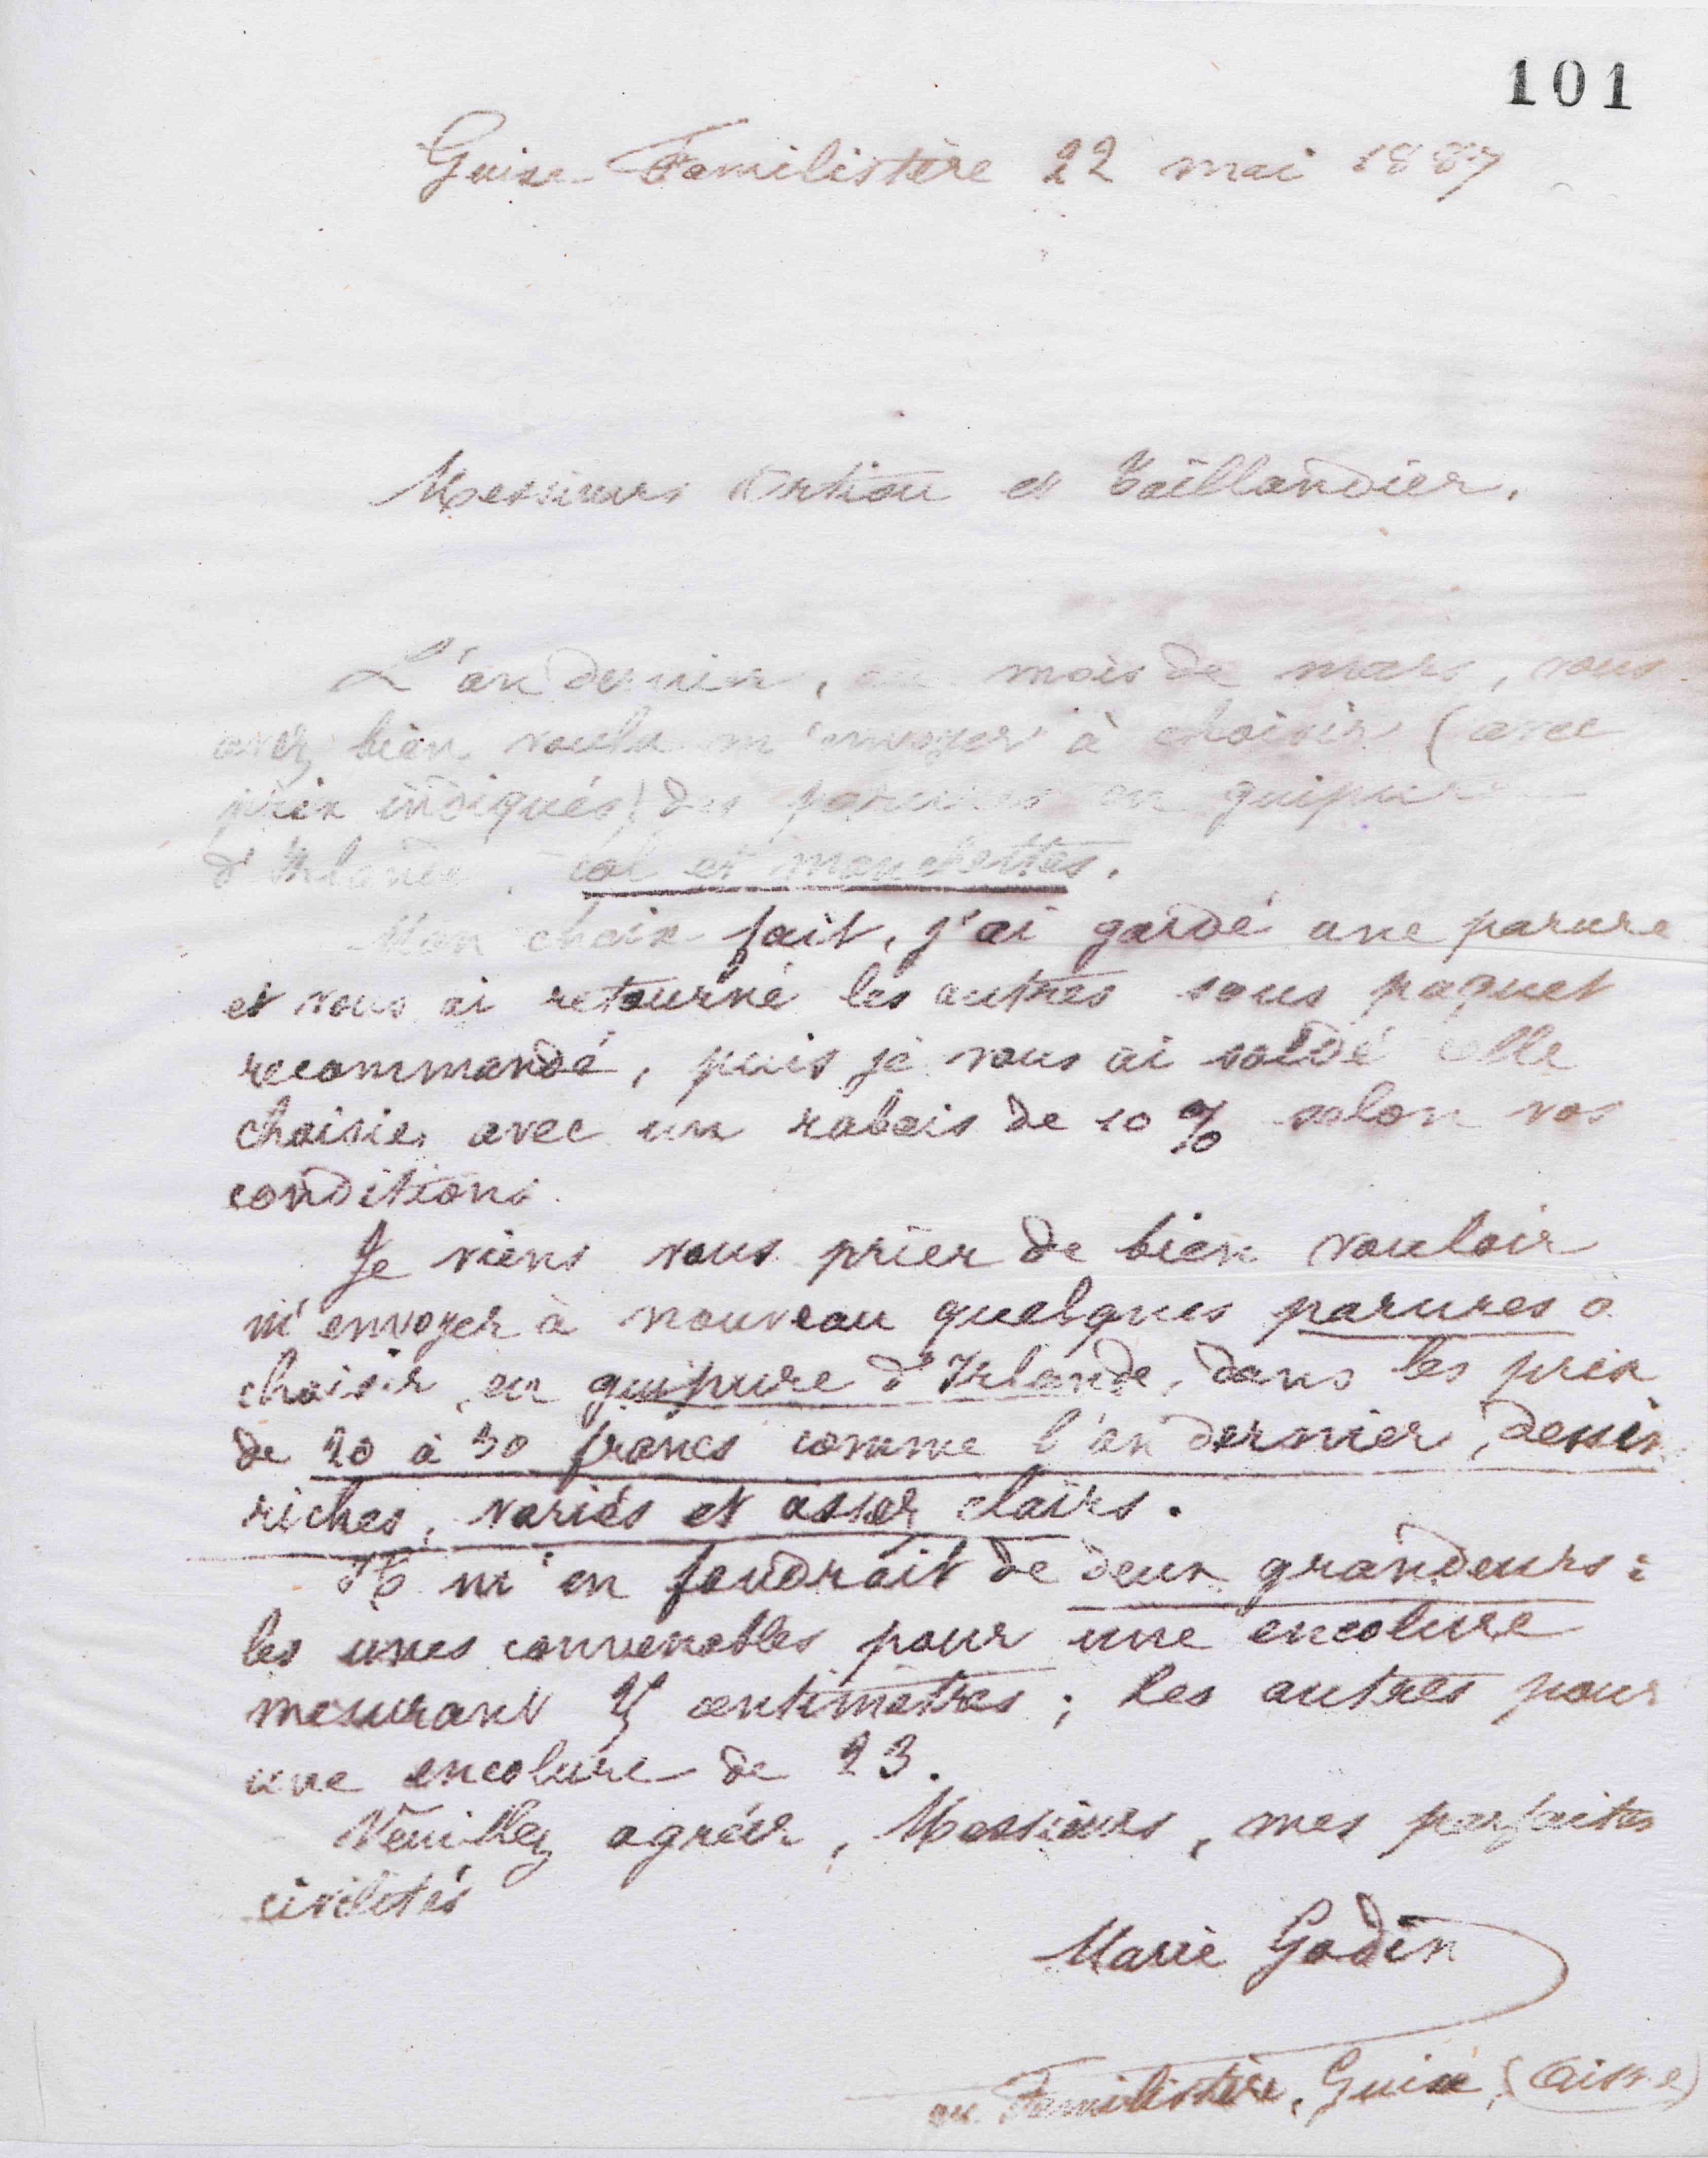 101
Guise Familistère 22 mai 1887
Messieurs Ortiou et Taillandier.
L'an dernier, au mois de mars, vous
avez bien voulu m'envoyer à choisir (avec
prix indiqués) des parures en guipure
d'Irlande : col et manchettes.
Mon choix fait, j'ai gardé une parure
et vous ai retourné les autres sous paquet
recommandé, puis je vous ai soldé celle
choisie, avec un rabais de 10 % selon vos
conditions.
Je viens vous prier de bien vouloir
m'envoyer à nouveau quelques parures à
choisir, en guipure d'Irlande, dans les prix
de 20 à 30 francs comme l'an dernier, dessins
riches, variés et assez clairs.
Il m'en faudrait de deux grandeurs :
les unes convenables pour une encolure
mesurant centimètres ; les autres pour
une encolure de 23.
Veuillez agréer, Messieurs, mes parfaites
civilités
Marie Godin
au Familistère, Guise, (Aisne)